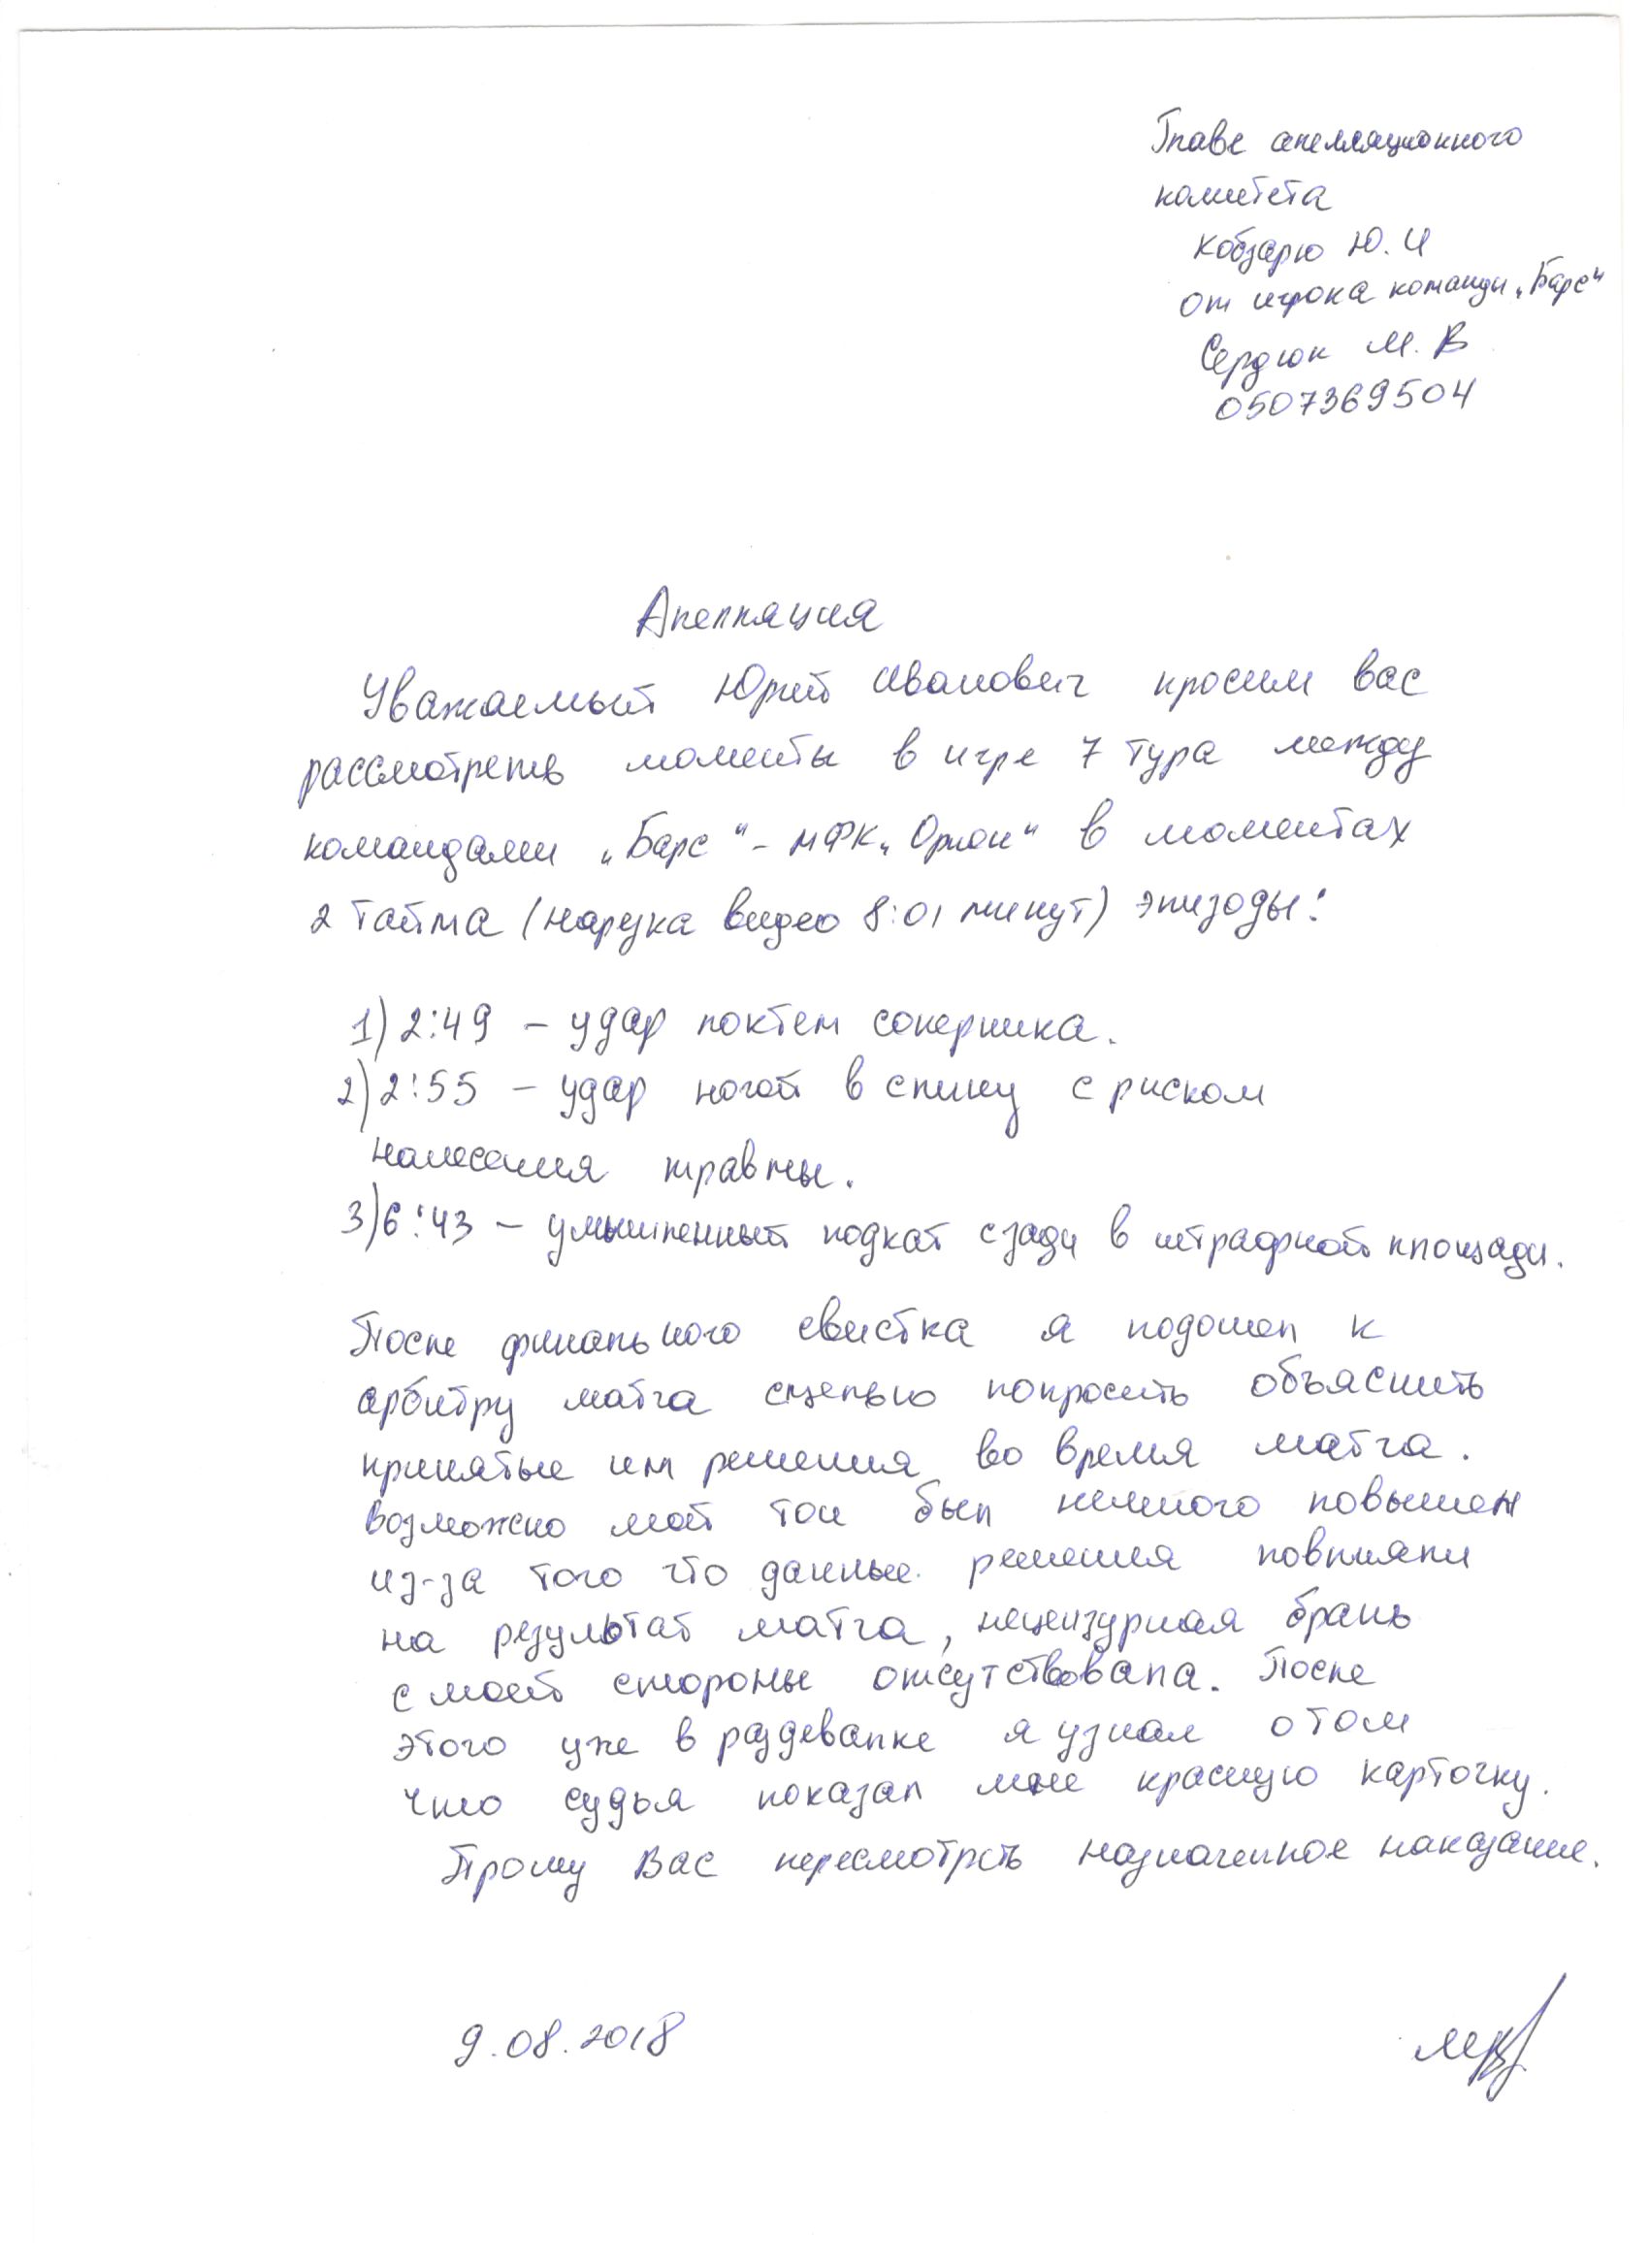 Главе апелляционного
комитета
Кобзарю Ю. И
от игрока команды „Барс“
Сердюк М. В
0507369504
Апелляция
Уважаемый Юрий Иванович просим вас
рассмотреть моменты в игре 7 тура между
командами „Барс“ - МФК „Орион“ в моментах
2 тайма (нарезка видео 8:01 минут) эпизоды:
1) 2:49 – удар локтем соперника.
2) 2:55 – удар ногой в спину с риском
нанесения травмы.
3) 6:43 – умышленный подкат сзади в штрафной площади.
После финального свистка я подошел к
арбитру матча сцелью попросить объяснить
принятые им решения во время матча.
Возможно мой тон был немного повышен
из-за того что данные решения повлияли
на результат матча, нецензурная брань
с моей стороны отсутствовала. После
этого уже в раздевалке я узнал о том
что судья показал мне красную карточку.
Прошу Вас пересмотреть назначенное наказание.
9.08.2018